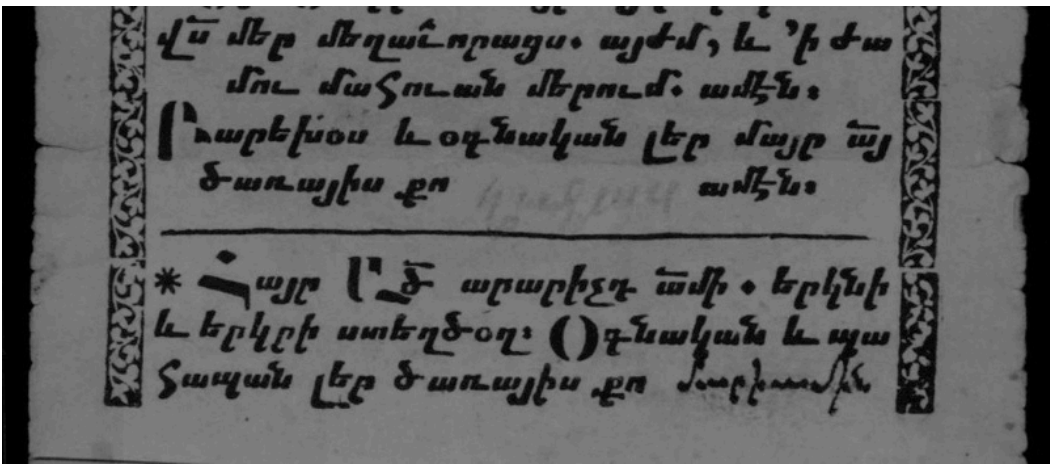 վս մեր մեղաւորացս. այժմ, և 'ի ժա
մու մահուան մերում. ամէն։
Բարեխօս և օգնական լեր մայր այ
ծառայիս քո ամէն։
* Հայր Բծ արարիչդ ամի. երկնի
և երկրի ստեղծօղ։ Օգնական և պա
հապան լեր ծառայիս քո